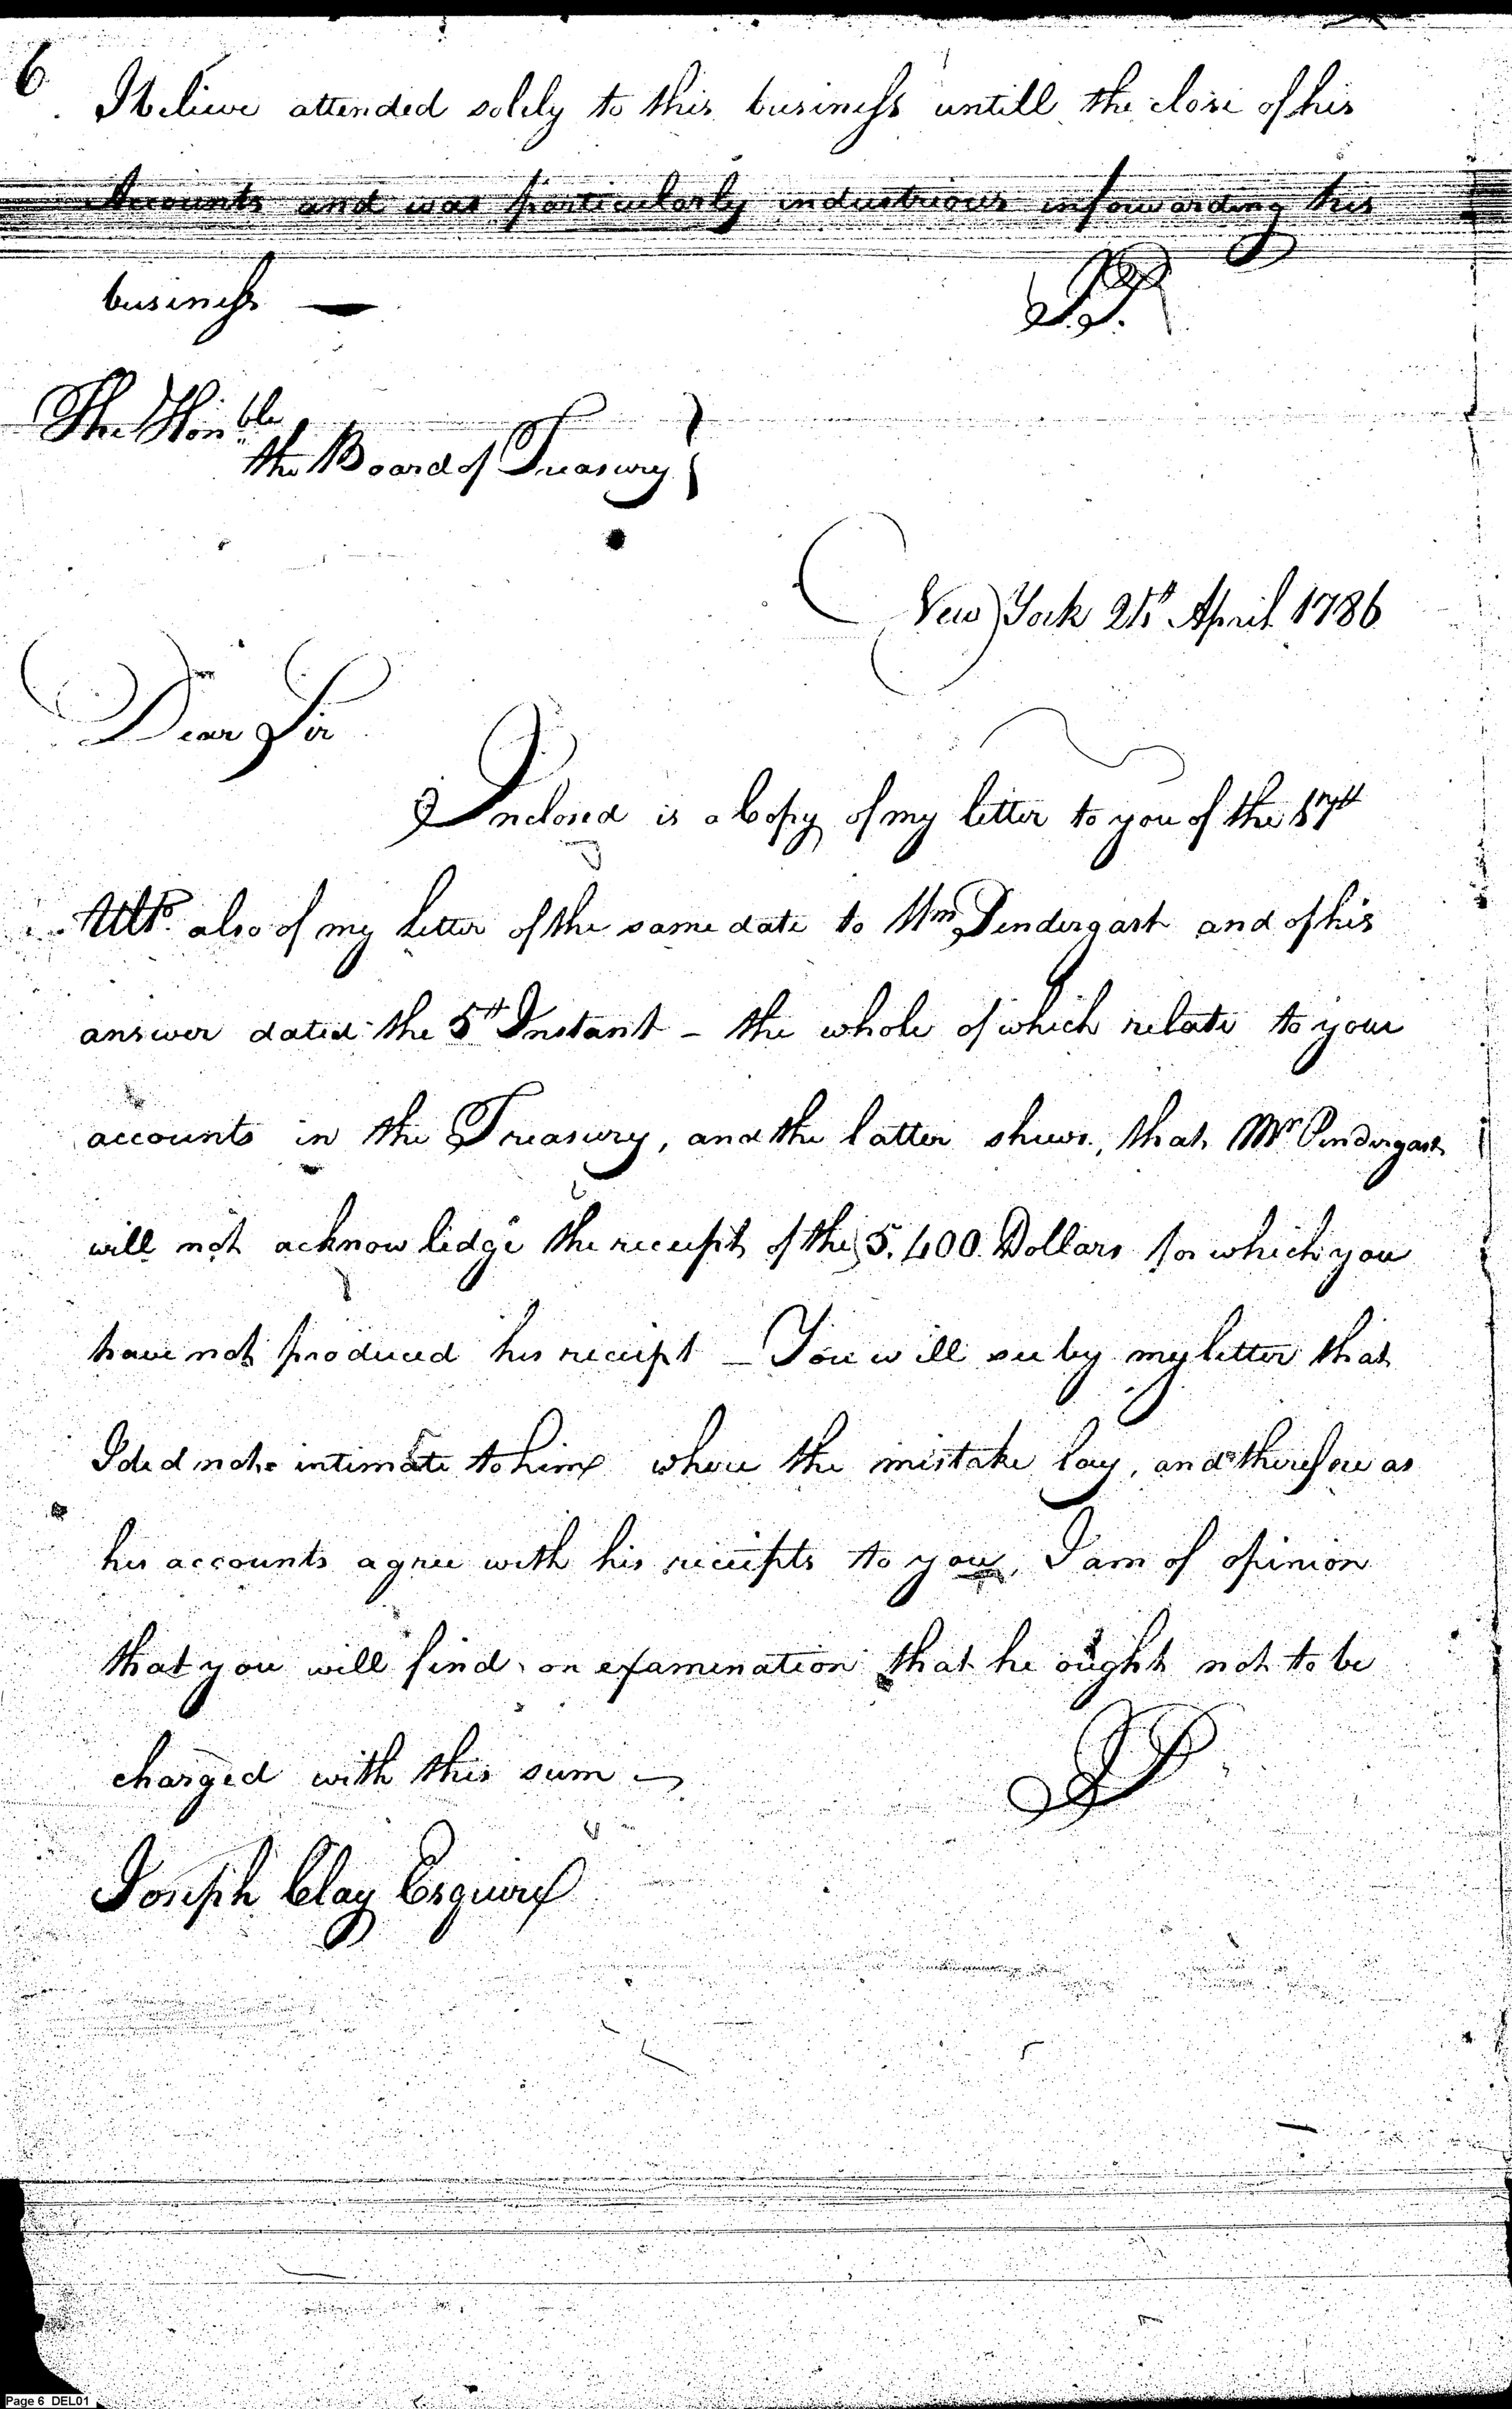 6
I believe attended solely to this business untill the close of his
Accounts and was particularly industrious in forwarding this
business —
J.P.
The Hon.ble
the Board of Treasury
New York 21st April 1786
Dear Sir
Inclosed is a Copy of my letter to you of the 17th
Ulto. also of my letter of the same date to Wm Pendergast and of his
answer dated the 5th Instant – the whole of which relate to your
accounts in the Treasury, and the latter shews, that Mr Pendergast
will not acknowledge the receipt of the 5.400 Dollars for which you
have not produced his receipt – You will see by my letter that
I did not intimate to him where the mistake lay, and therefore as
his accounts agree with his receipts to you, I am of opinion
that you will find on examination that he ought not to be
charged with this sum –
J.P.
Joseph Clay Esquire
Page 6 DEL01